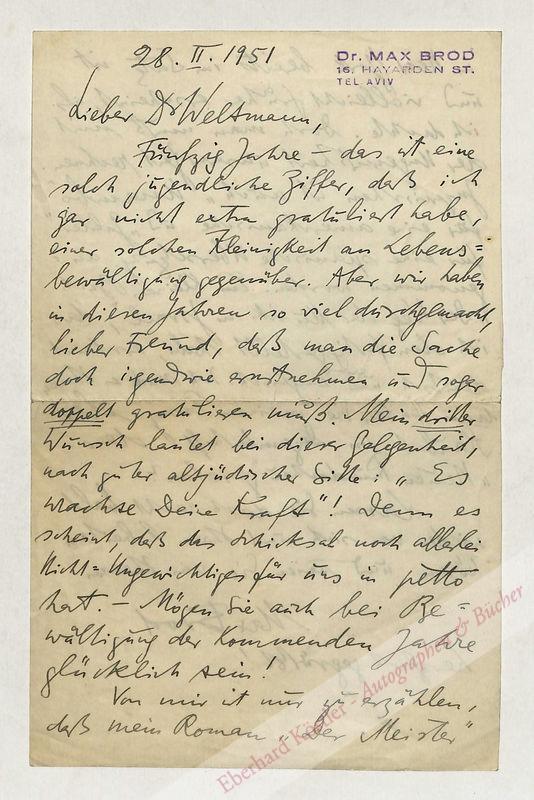 28. II. 1951
Dr. MAX BROD
16, HAYARDEN ST.
TEL AVIV
Lieber Dr Weltmann,
Fünfzig Jahre – das ist eine
solch jugendliche Ziffer, daß ich
gar nicht extra gratuliert habe,
einer solchen Kleinigkeit an Lebens=
bewältigung gegenüber. Aber wir haben
in diesen Jahren so viel durchgemacht,
lieber Freund, daß man die Sache
doch irgendwie ernstnehmen und sogar
doppelt gratulieren muß. Mein dritter
Wunsch lautet bei dieser Gelegenheit,
nach guter altjüdischer Sitte: „Es
wachse Deine Kraft"! Denn es
scheint, daß das Schicksal noch allerlei
Nicht=Ungewichtiges für uns in petto
hat. – Mögen Sie auch bei Be=
wältigung der kommenden Jahre
glücklich sein!
Von mir ist nur zu erzählen,
daß mein Roman „Der Meister"
Eberhard Köstler - Autographen & Bücher